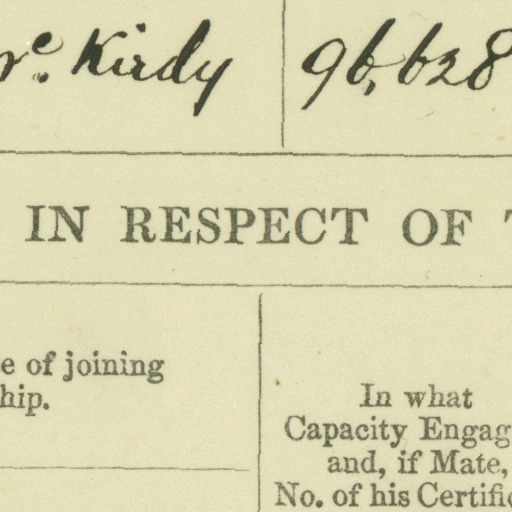 Kirdy 96,628
IN RESPECT OF
e of joining
hip.
In what
Capacity Engag
and, if Mate,
No. of his Certific